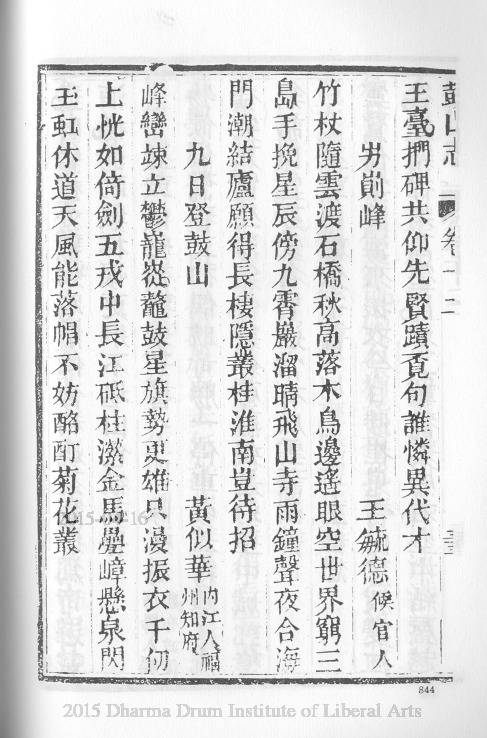 鼓山志 卷十二
王臺捫碑共仰先賢蹟覓句誰憐異代才
屴崱峰 王毓德 候官人
竹杖隨雲渡石橋秋高落木鳥邊遙眼空世界窮三
島手挽星辰傍九霄巖溜晴飛山寺雨鐘聲夜合海
門潮結廬願得長棲隱叢桂淮南豈待招
九日登鼓山 黃似華 內江人福州知府
峰巒竦立鬱巃嵸鼇鼓星旗勢更雄只漫振衣千仞
上恍如倚劍五戎中長江砥柱瀠金馬疊嶂懸泉閃
玉虹休道天風能落帽不妨酩酊菊花叢
844
2015 Dharma Drum Institute of Liberal Arts